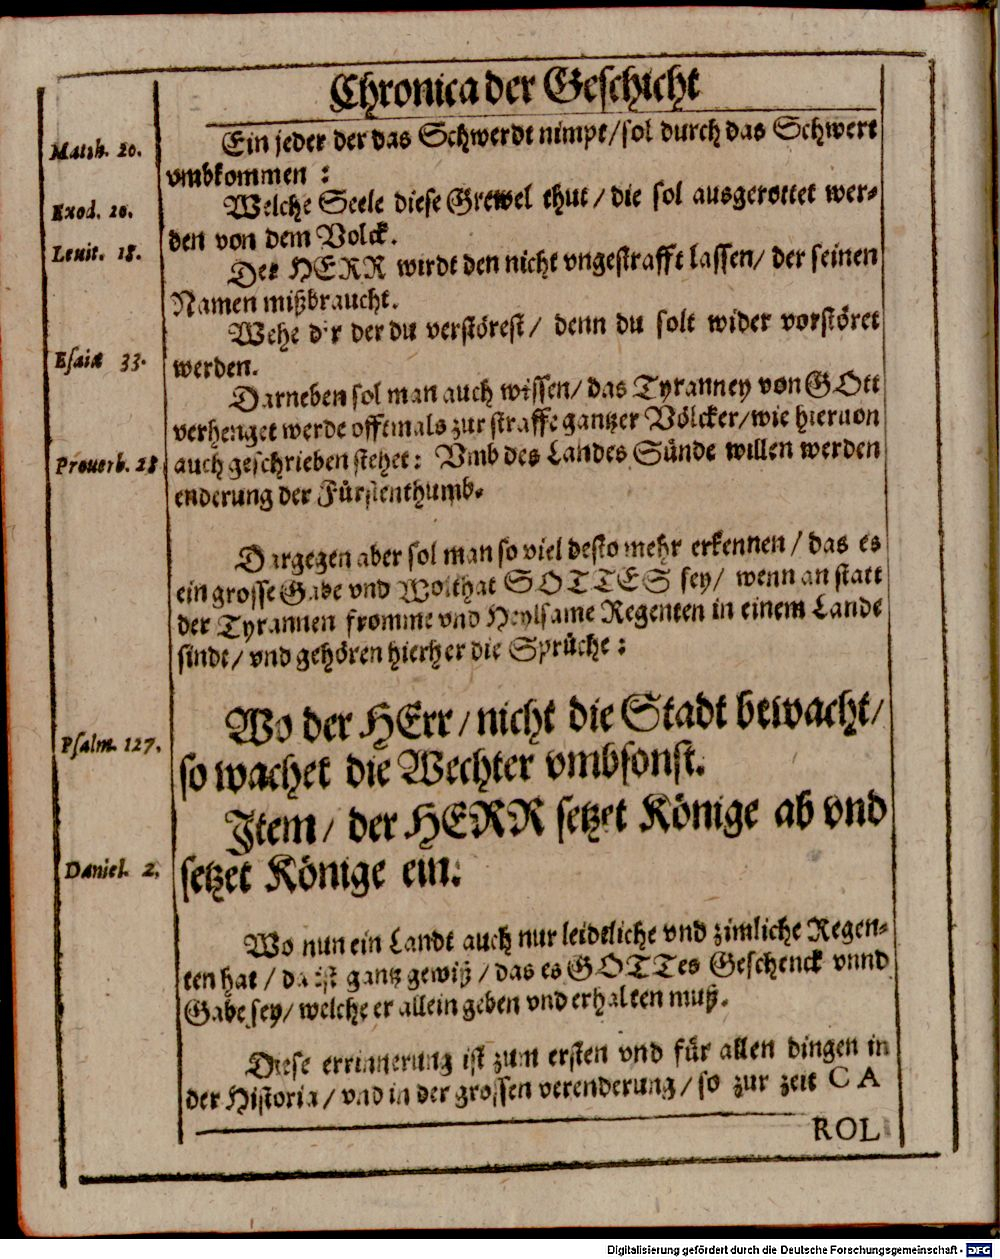 Chronica der Geschicht
Ein jeder der das Schwerdt nimpt/ sol durch das Schwert
Matth. 26.
vmbkommen :
Welche Seele diese Grewel thut / die sol ausgerottet wer-
Exod. 20.
den von dem Volck.
Leuit. 18.
Der HERR wirdt den nicht vngestrafft lassen/ der seinen
Namen mißbraucht.
Wehe dir der du verstörest/ denn du solt wider vorstöret
Esaiæ 33.
werden.
Darneben sol man auch wissen/ das Tyranney von GOtt
verhenget werde offtmals zur straffe gantzer Völcker/ wie hieruon
Prouerb. 28
auch geschrieben stehet: Vmb des Landes Sünde willen werden
enderung der Fürstenthumb.
Dargegen aber sol man so viel desto mehr erkennen / das es
ein grosse Gabe vnd Wolthat GOTTES sey/ wenn an statt
der Tyrannen fromme vnd Heylsame Regenten in einem Lande
sindt/ vnd gehören hierher die Sprüche :
Wo der HErr / nicht die Stadt bewacht/
Psalm. 127.
so wachet die Wechter vmbsonst.
Jtem/ der HERR setzet Könige ab vnd
Daniel. 2.
setzet Könige ein.
Wo nun ein Landt auch nur leidtliche vnd zimliche Regen-
ten hat / da ist gantz gewiß / das es GOTTes Geschenck vnnd
Gabe sey/ welche er allein geben vnd erhalten muß.
Diese errinnerung ist zum ersten vnd für allen dingen in
der Historia / vnd in der grossen verenderung / so zur zeit CA
ROL
Digitalisierung gefördert durch die Deutsche Forschungsgemeinschaft - DFG